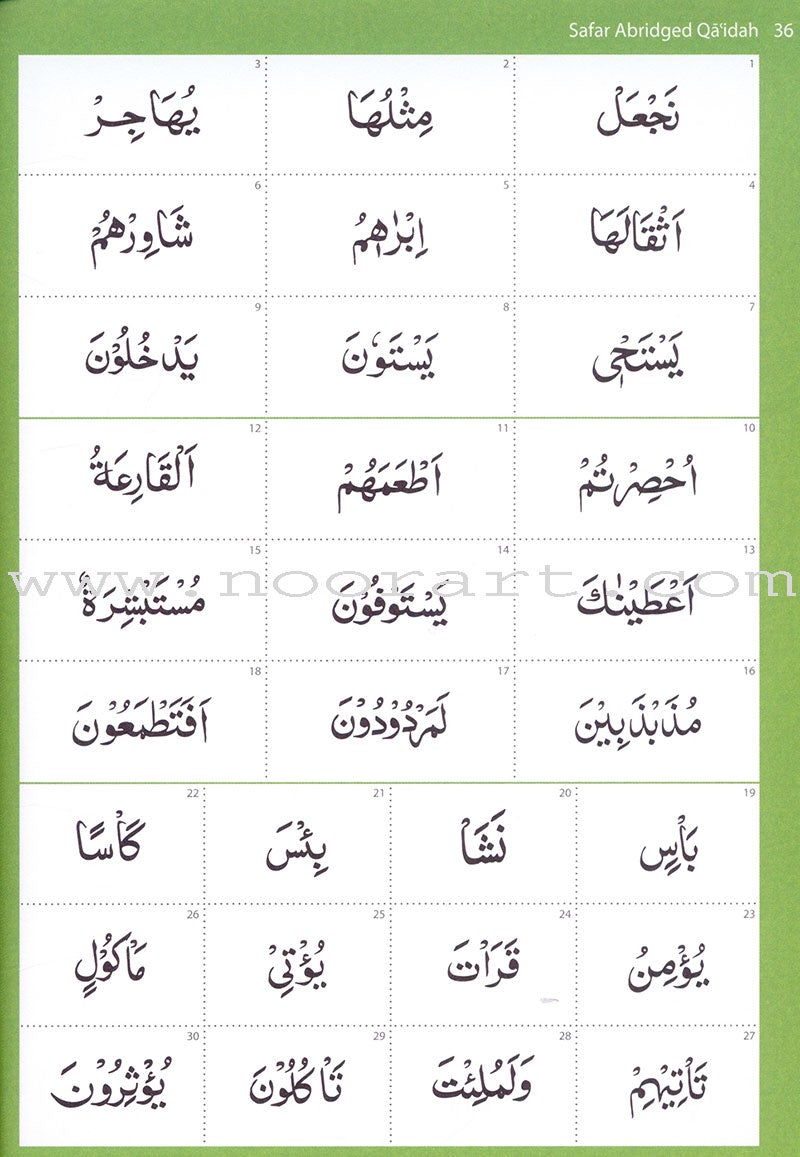 Safar Abridged Qā'idah 36
1 نَجْعَلْ 2 مِثْلُهَا 3 يُهَاجِرْ
4 اَثْقَالَهَا 5 اِبْرٰاهٖمُ 6 شَاوِرْهُمْ
7 يَسْتَحْيٖ 8 يَسْتَوٗنَ 9 يَدْخُلُوْنَ
10 اُحْصِرْتُمْ 11 اَطْعَمَهُمْ 12 اَلْقَارِعَةُ
13 اَعْطَيْنٰكَ 14 يَسْتَوْفُوْنَ 15 مُسْتَبْشِرَةٌ
www.noorart.com
16 مُذَبْذَبِيْنَ 17 لَمَرْدُوْدُوْنَ 18 اَفَتَطْمَعُوْنَ
19 بَاْسٍ 20 نَشَاْ 21 بِئْسَ 22 كَاْسًا
23 يُؤْمِنُ 24 قَرَاْتَ 25 يُؤْتِيْ 26 مَاْكُوْلٍ
27 تَاْتِيْهِمْ 28 وَلَمُلِئْتَ 29 تَاْكُلُوْنَ 30 يُؤْثِرُوْنَ